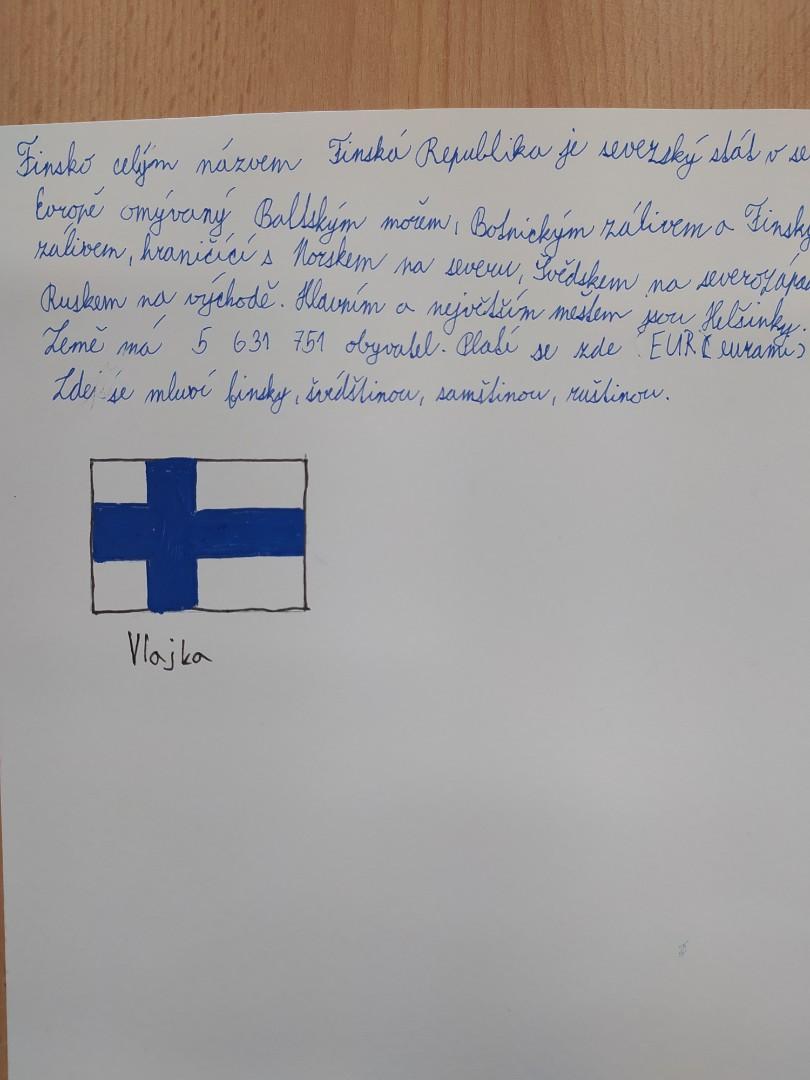 Finsko celým názvem Finská Republika je severský stát v se
Evropě omývaný Baltským mořem, Botnickým zálivem a Finský
zálivem, hraničící s Norskem na severu, Švédskem na severozápad
Ruskem na východě. Hlavním a největším městem jsou Helsinky.
Země má 5 631 751 obyvatel. Platí se zde EUR (eurami)
Zde se mluví finsky, švédštinou, samštinou, ruštinou.
Vlajka